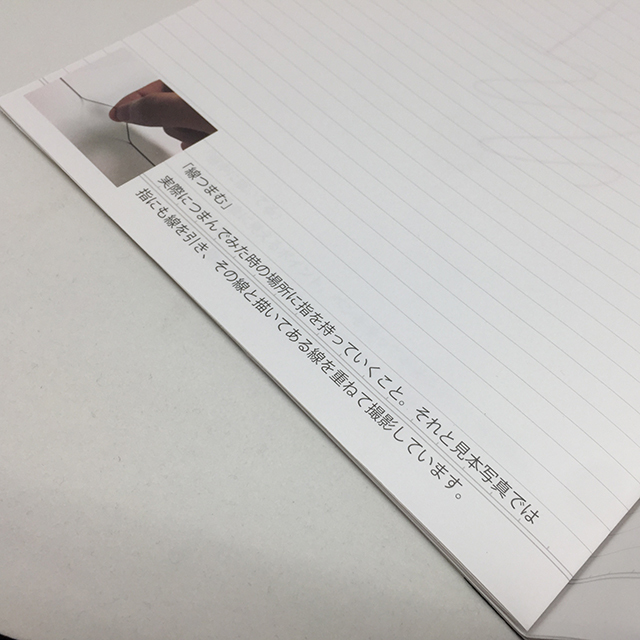 「線つまむ」
実際につまんでみた時の場所に指を持っていくこと。それと見本写真では
指にも線を引き、その線と描いてある線を重ねて撮影しています。